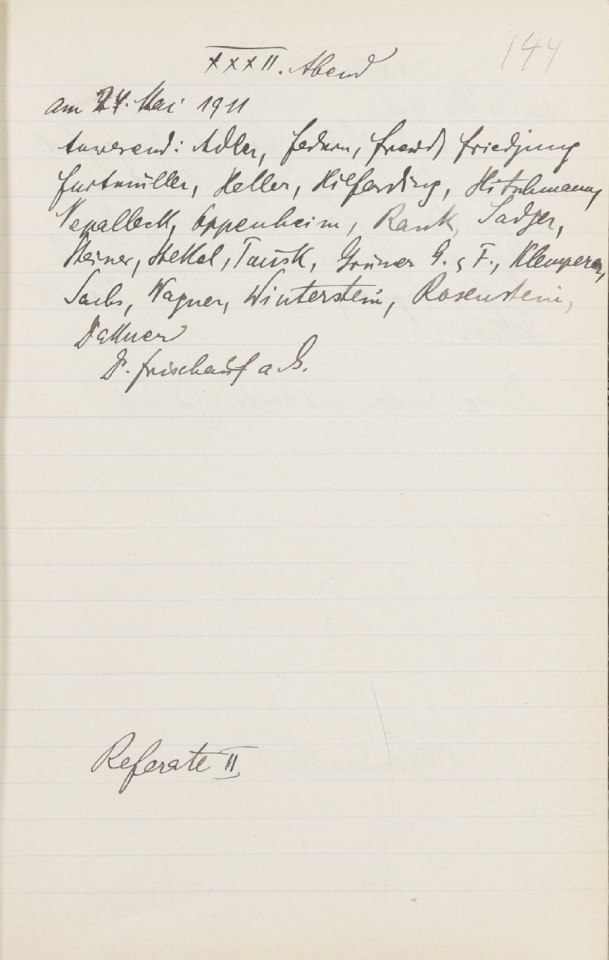 144
XXXII. Abend
am 24. Mai 1911
Anwesend: Adler, Federn, Freud, Friedjung
Furtmüller, Heller, Hilferding, Hitschmann,
Nepalleck, Oppenheim, Rank, Sadger,
Steiner, Stekel, Tausk, Grüner G. u. F., Klemperer,
Sachs, Wagner, Winterstein, Rosenstein,
Dattner
Dr. Frischauf a. G.
Referate II